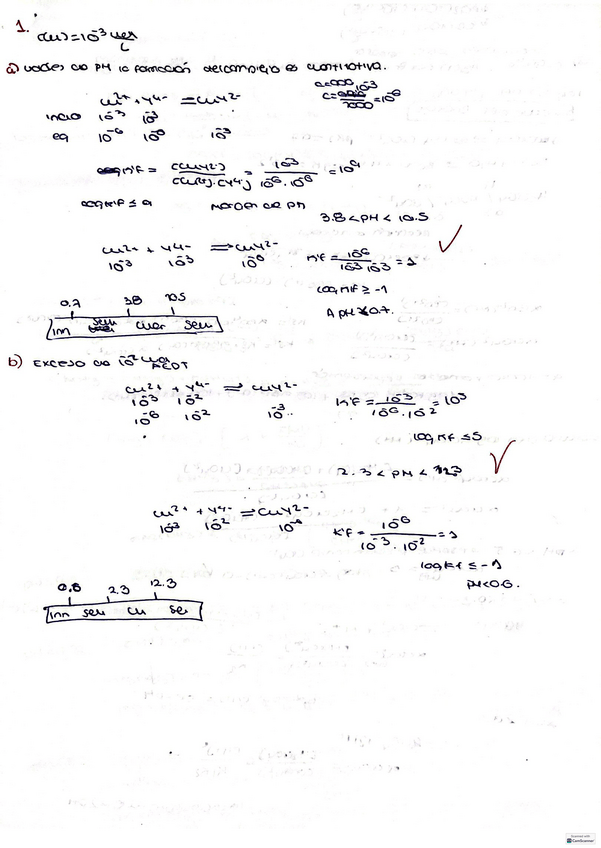 1.
c(M) = 10⁻³ mol/L
a) valores de PH la formación del complejo es cuantitativa.
Cu²⁺ + Y⁴⁻ ⇌ CuY²⁻
inicio 10⁻³ 10⁻³
eq 10⁻⁶ 10⁻⁶ 10⁻³
= 10⁻⁶
K'F = = 10⁻³ / 10⁻⁶ · 10⁻⁶ = 10⁹
log K'F ≤ 9
3.8 < PH < 10.5
Cu²⁺ + Y⁴⁻ ⇌ CuY²⁻
10⁻³ 10⁻³ 10⁻⁶
K'F = 10⁻⁶ / 10⁻³ 10⁻³ = 1
log K'F ≥ -1
A PH 0.7.
0.7 3.8 10.5
inn sem cuan sem
b) Exceso de 10⁻² AEDT
Cu²⁺ + Y⁴⁻ ⇌ CuY²⁻
10⁻³ 10⁻²
10⁻⁶ 10⁻² 10⁻³
K'F = 10⁻³ / 10⁻⁶ · 10⁻² = 10⁵
log K'F ≤ 5
2.3 < PH < 12.3
Cu²⁺ + Y⁴⁻ ⇌ CuY²⁻
10⁻³ 10⁻² 10⁻⁶
K'F = 10⁻⁶ / 10⁻³ · 10⁻² = 1
log K'F ≤ -1
PH<0.6.
2.3 12.3
inn sem cu se
Scanned with
CamScanner